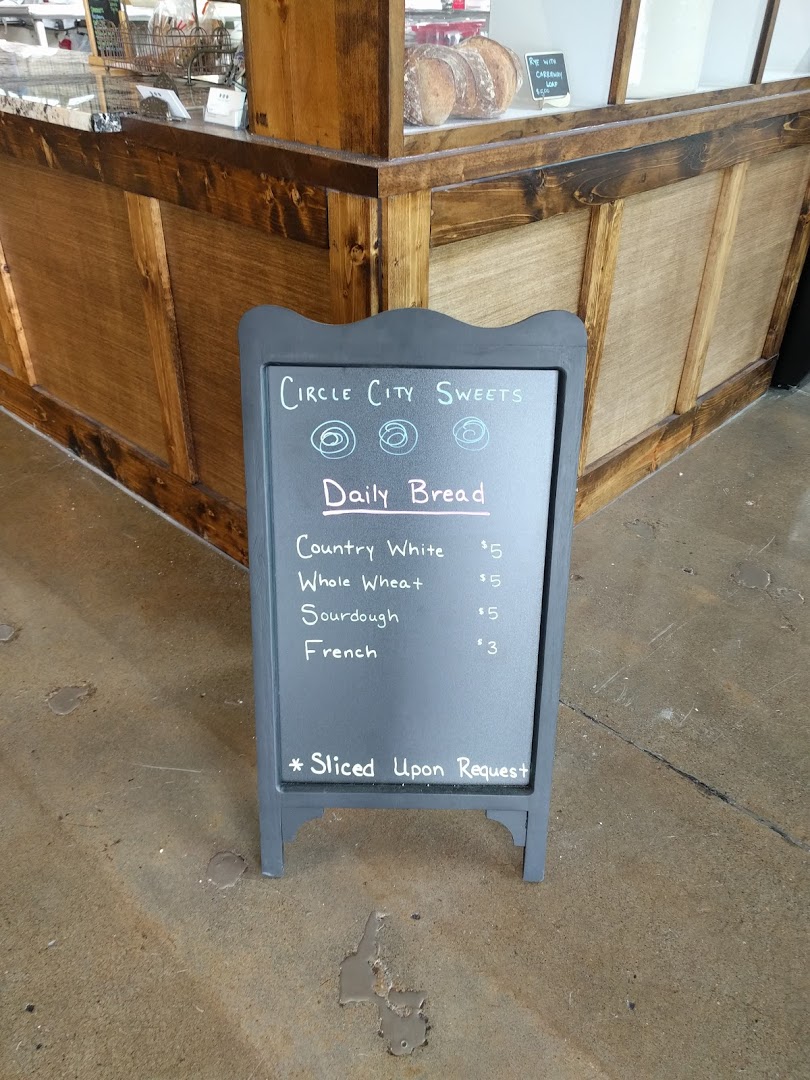 RYE WITH
CARRAWAY
LOAF
CIRCLE CITY SWEETS
Daily Bread
Country White $5
Whole Wheat $5
Sourdough $5
French $3
* Sliced Upon Request